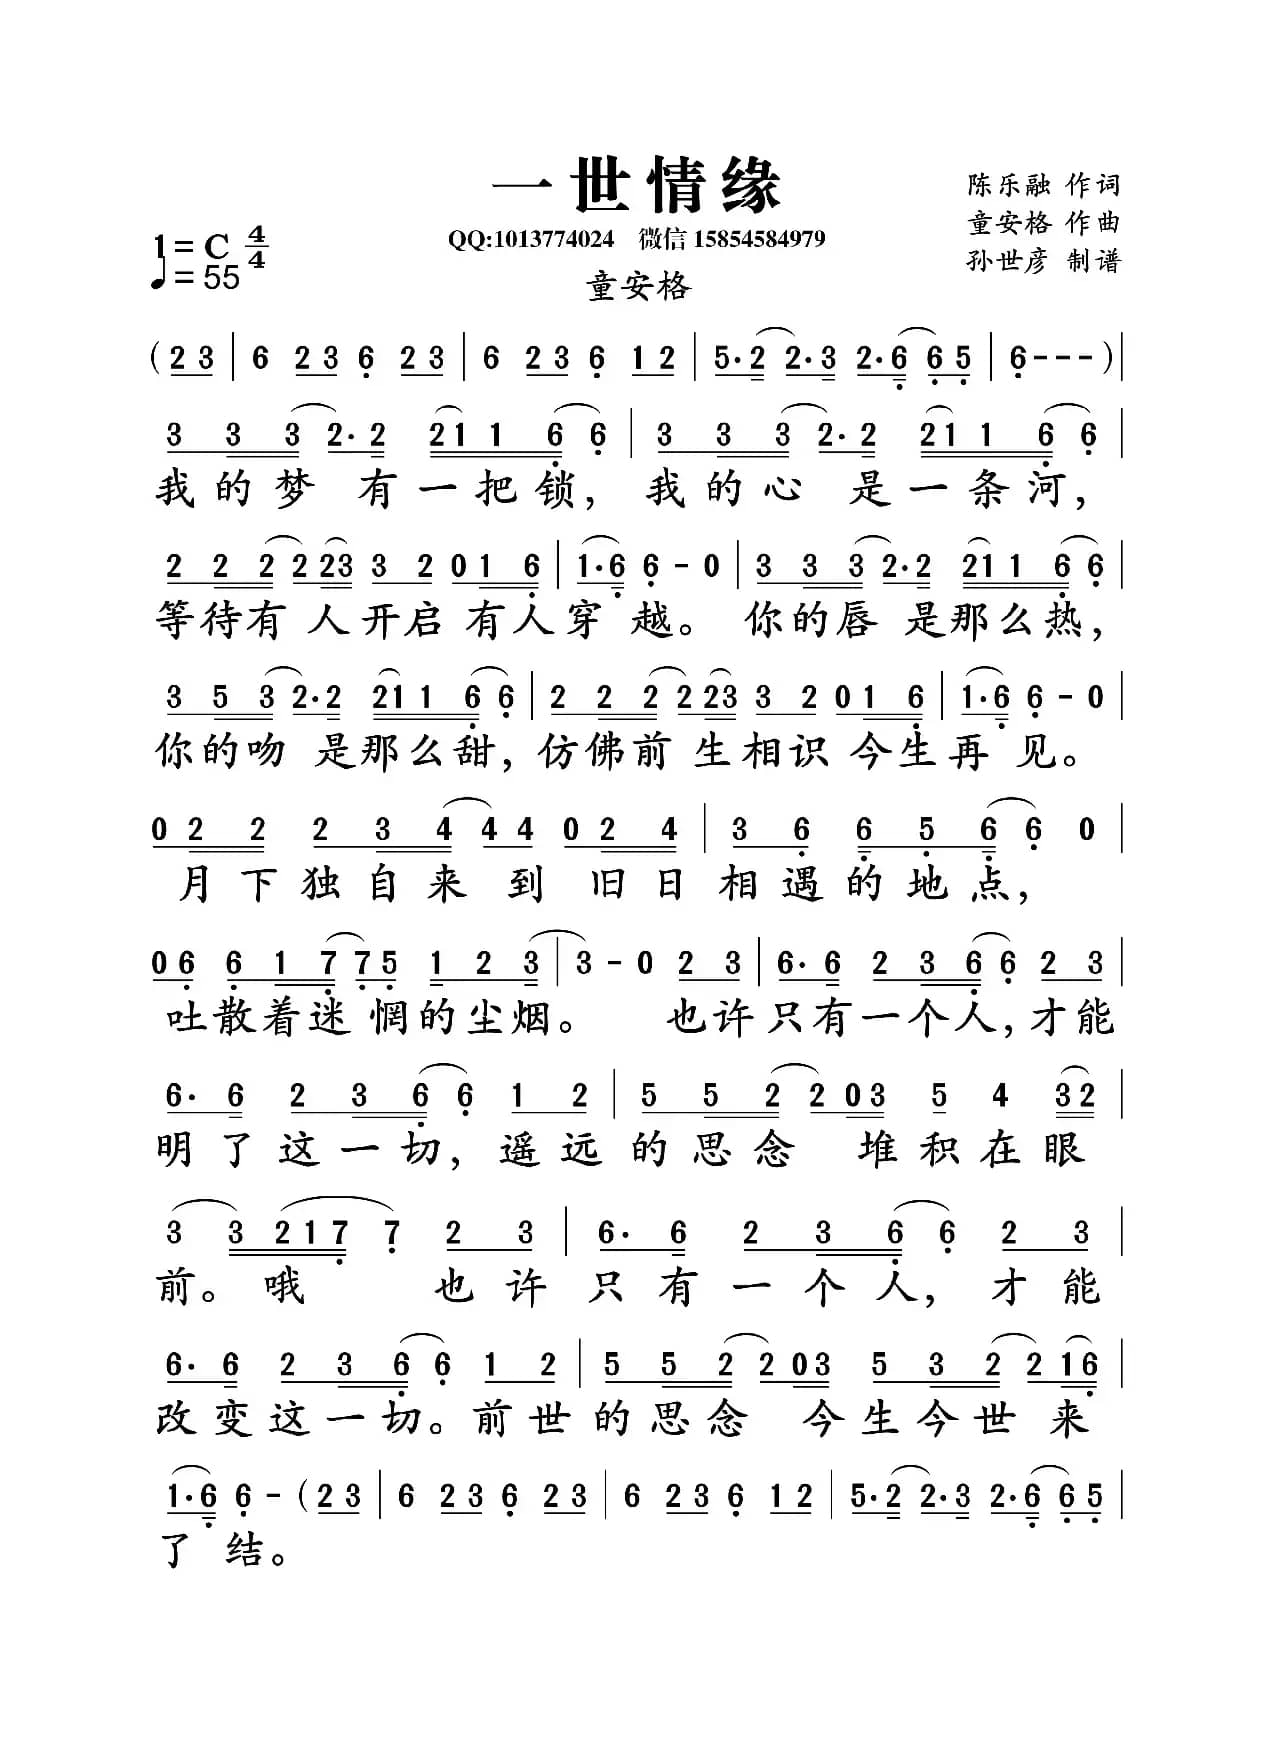 一世情缘
陈乐融 作词
1=C 4/4
QQ:1013774024 微信 15854584979
童安格 作曲
♩=55
童安格
孙世彦 制谱
(2 3 | 6 2 3 6 2 3 | 6 2 3 6 1 2 | 5·2 2·3 2·6 6 5 | 6 - - - ) |
3 3 3 2·2 2 1 1 6 6 | 3 3 3 2·2 2 1 1 6 6 |
我的梦 有一把锁, 我的心 是一条河,
2 2 2 2 2 3 3 2 0 1 6 | 1·6 6 - 0 | 3 3 3 2·2 2 1 1 6 6 |
等待有 人开启 有人穿 越。 你的唇 是那么热,
3 5 3 2·2 2 1 1 6 6 | 2 2 2 2 2 3 3 2 0 1 6 | 1·6 6 - 0 |
你的吻 是那么甜, 仿佛前 生相识 今生再 见。
0 2 2 2 3 4 4 4 0 2 4 | 3 6 6 5 6 6 0 |
月下独自来 到 旧日相遇的地点,
0 6 6 1 7 7 5 1 2 3 | 3 - 0 2 3 | 6·6 2 3 6 6 2 3 |
吐散着迷 惘的尘烟。 也许只有一个人,才能
6·6 2 3 6 6 1 2 | 5 5 2 2 0 3 5 4 3 2 |
明了这一切, 遥远的思念 堆积在眼
3 3 2 1 7 7 2 3 | 6·6 2 3 6 6 2 3 |
前。 哦 也许只有一个人, 才能
6·6 2 3 6 6 1 2 | 5 5 2 2 0 3 5 3 2 2 1 6 |
改变这一切。前世的思念 今生今世 来
1·6 6 - (2 3 | 6 2 3 6 2 3 | 6 2 3 6 1 2 | 5·2 2·3 2·6 6 5 |
了 结。